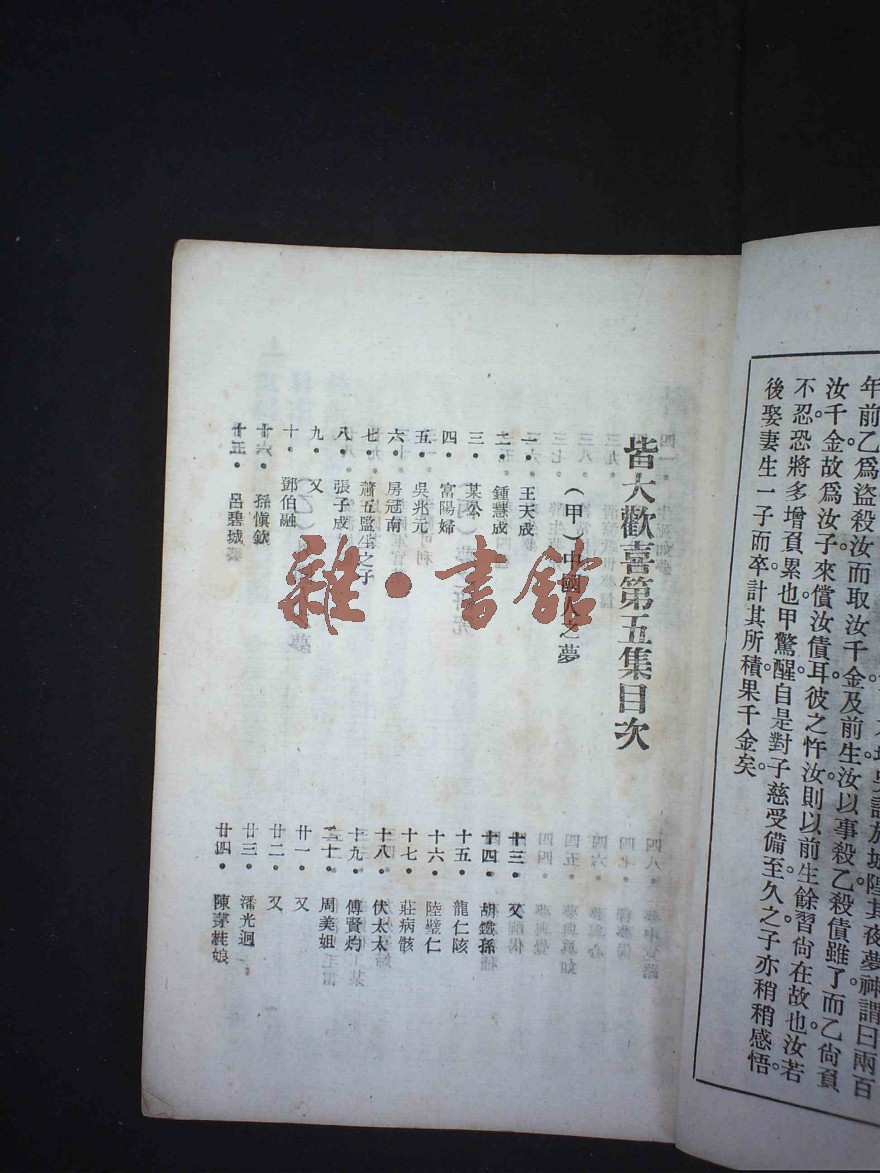 於城隍其夜夢神謂曰兩百
年前乙爲盜殺汝而取汝千金及前生汝以事殺乙殺債雖了。而乙尙負
汝千金故爲汝子來償汝債耳彼之忤汝則以前生餘習尙在故也汝若
不忍恐將多增負累也甲驚醒自是對子慈受備至久之子亦稍稍感悟。
後娶妻生一子而卒計其所積果千金矣。
皆大歡喜第五集目次
(甲)中國人之夢
一・王天成
二・鍾慧成
三・某公
四・富陽婦
五・吳兆元
六・房冠南
七・蕭五監生之子
八・張子成
九・又
十・鄧伯融
孫愼欽
呂碧城
十三・又
十四・胡鐵孫
十五・龍仁陔
十六・陸璧仁
十七・莊病骸
十八・伏太太
十九・傅賢灼
二十・周美姐
廿一・又
廿二・又
廿三・潘光迥
廿四・陳茅桂娘
雜・書館